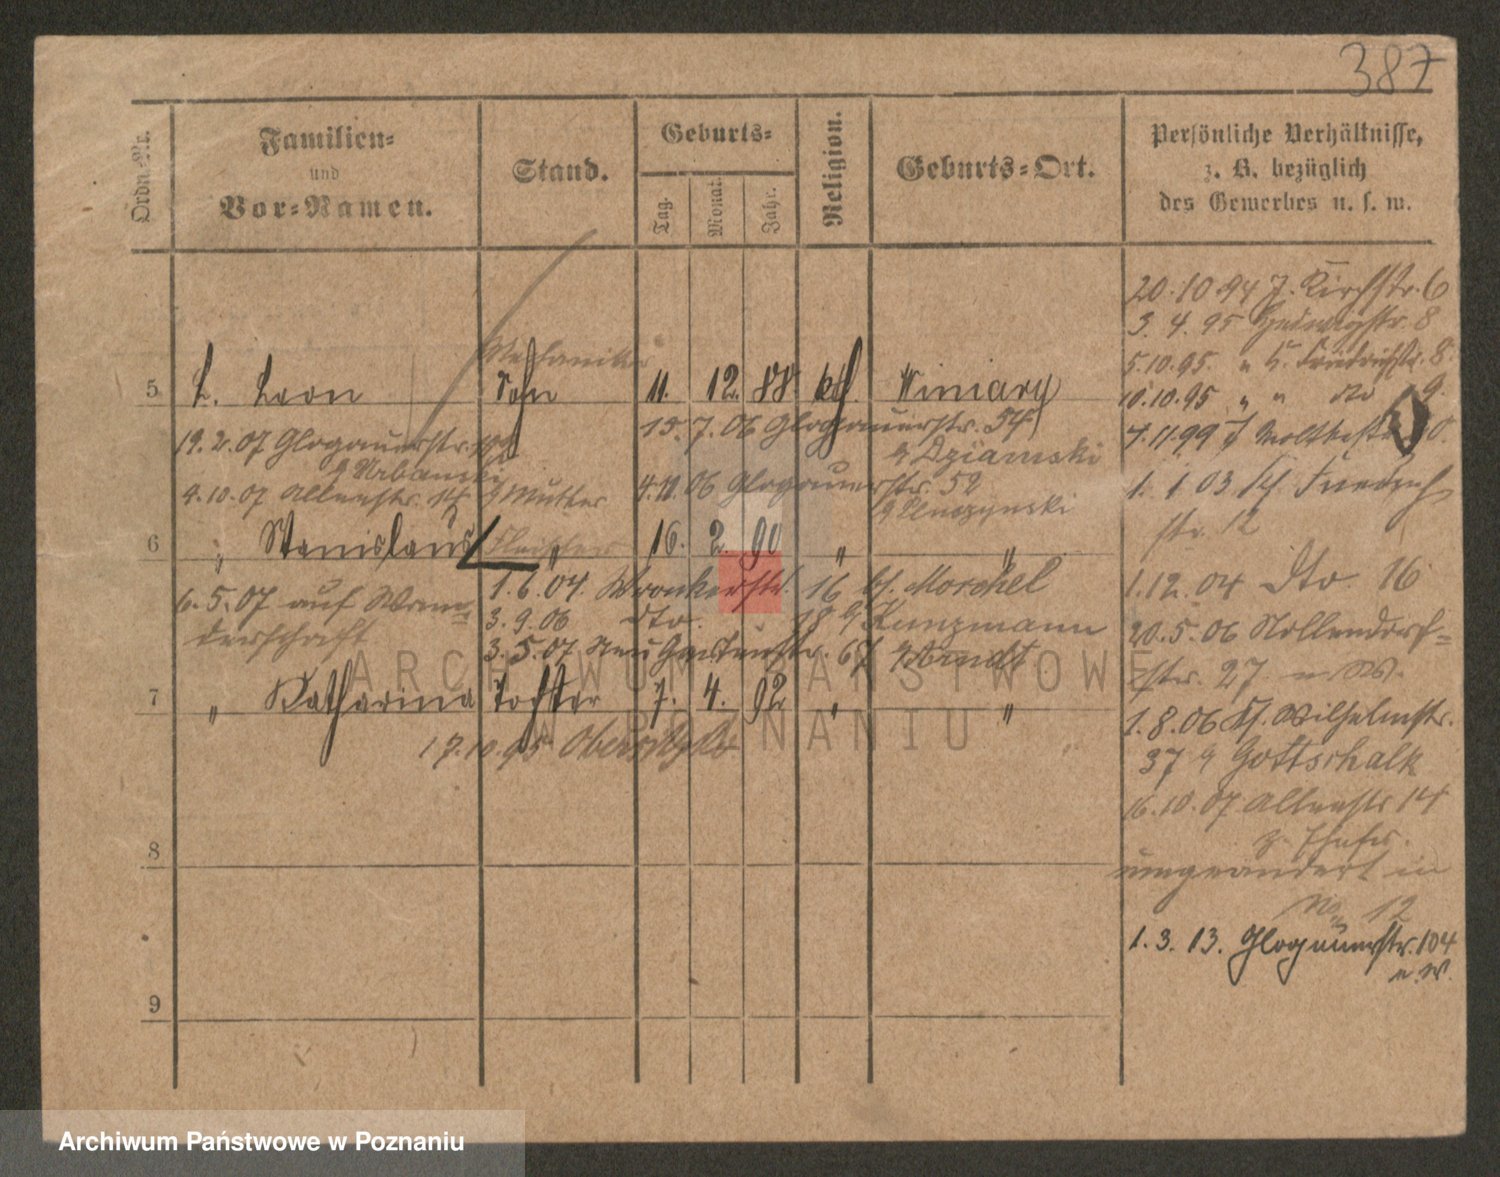 387
Ordn.-Nr.
Familien-
und
Vor-Namen.
Stand.
Geburts-
Tag.
Monat.
Jahr.
Religion.
Geburts-Ort.
Persönliche Verhältnisse,
z. B. bezüglich
des Gewerbes u. s. w.
20.10.94 J. Kirchstr. 6
3. 4. 95 Hedwigstr. 8
5.10.95. " H. Friedrichstr. 8.
10.10.95 " " dto 9.
4.11.99 J Moltkestr.
1. 1 03 Friedrich
str. 12
1.12.04 dto 16
20.5.06 Nollendorf=
str. 27
1.8.06 Wilhelmstr.
37 Gottschalk
16.10.07 Alleestr 14
umgeändert in
No 12
1.3.13. Glogauerstr. 104
n. W.
Mechaniker
5 L. Leon Sohn 11. 12. 88 kth. Winiary
19.2.07 Glogauerstr.
Urbanski
15.7.06 Glogauerstr. 54
Dziamski
4.10.07 Alleestr. 14 Mutter
4.11.06 Glogauerstr. 52
6 " Stanislaus Fleischer " 16. 2. 90 " "
1.6.04. Wronkerstr. 16 bs. Morchel
6.5.07 auf Wan=
derschaft
3.9.06 dto. 18 Kunzmann
3.5.07. Neu Gartenstr. 67 Arndt
7 " Katharina Tochter 7. 4. 92 " "
17.10.95
8
9
ARCHIWUM PAŃSTWOWE
W POZNANIU
Archiwum Państwowe w Poznaniu